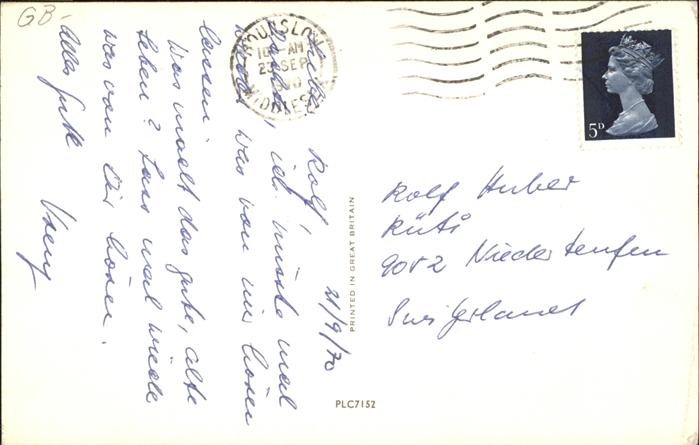 GB-
HOUNSLOW
10 - AM
SEP
MIDDLESEX
5D
21/9/70
Lieber Rolf,
dachte, ich müsste mal
wieder was von mir hören
lassen.
Was macht das gute, alte
Leben? Lass mal wieder
was von Dir hören.
Alles Gute
Vreny
PRINTED IN GREAT BRITAIN
Rolf Huber
Rüti
9052 Niederteufen
Switzerland
PLC7152